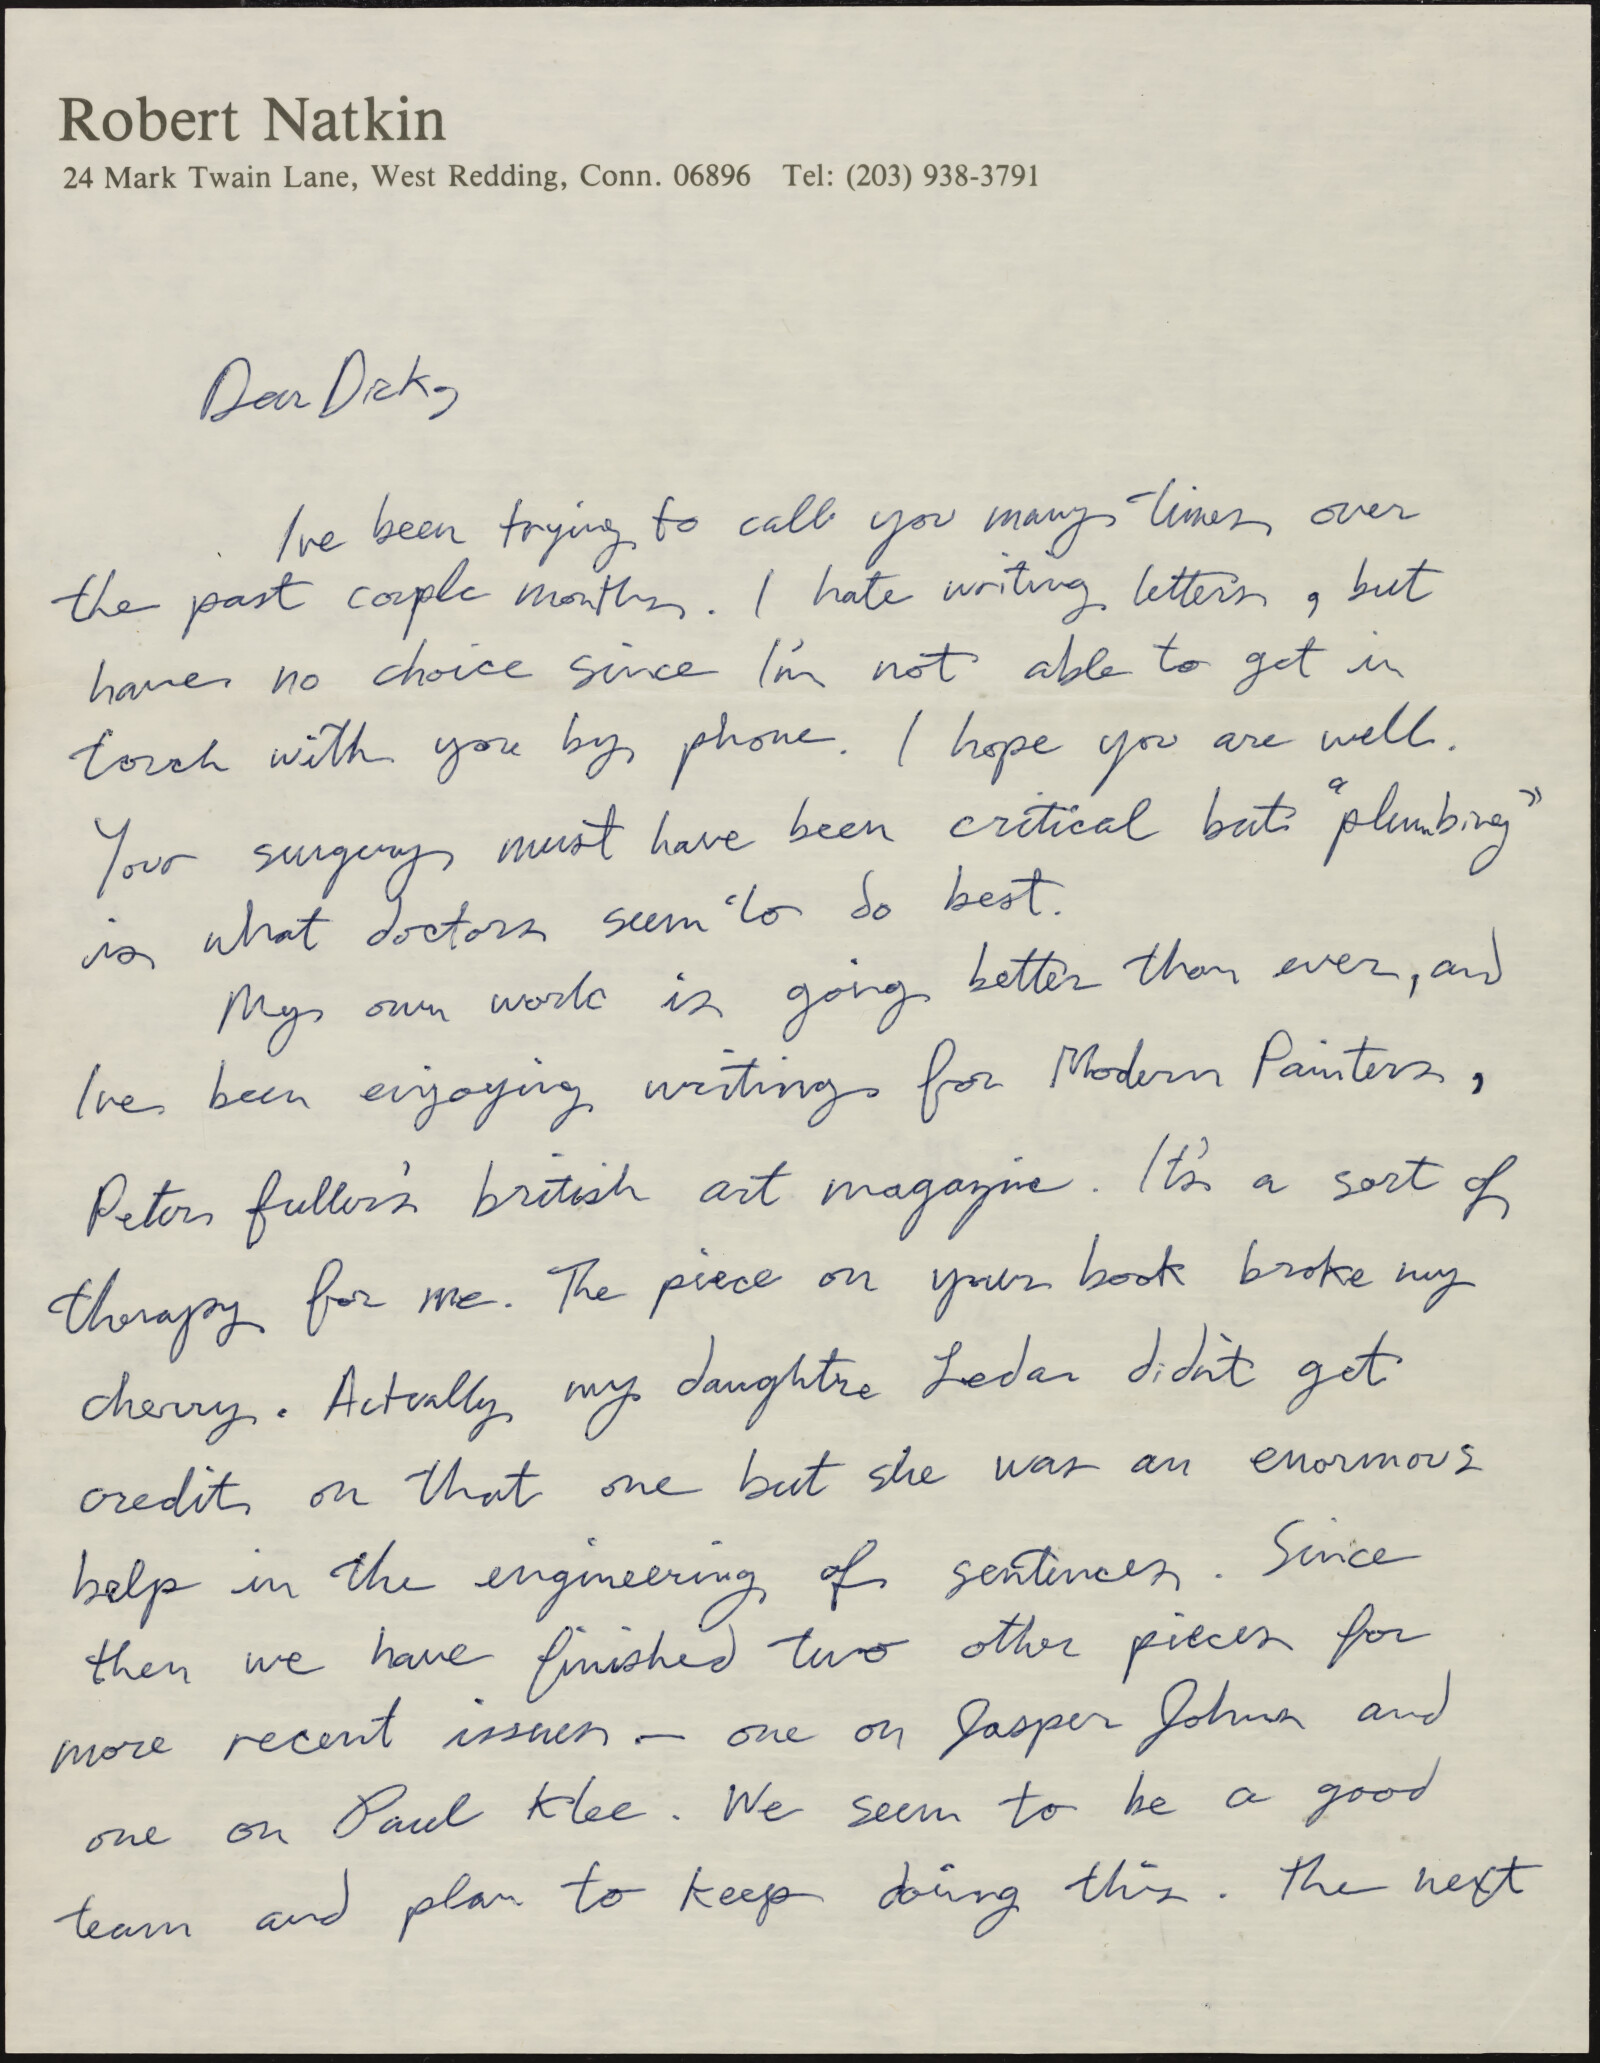 Robert Natkin
24 Mark Twain Lane, West Redding, Conn. 06896 Tel: (203) 938-3791
Dear Dick,
I've been trying to call you many times over
the past couple months. I hate writing letters, but
have no choice since I'm not able to get in
touch with you by phone. I hope you are well.
Your surgery must have been critical but "plumbing"
is what doctors seem to do best.
My own work is going better than ever, and
I've been enjoying writing for Modern Painters,
Peter fuller's british art magazine. It's a sort of
therapy for me. The piece on your book broke my
cherry. Actually my daughtre Leda didn't get
credit on that one but she was an enormous
help in the engineering of sentences. Since
then we have finished two other pieces for
more recent issues — one on Jasper Johns and
one on Paul Klee. We seem to be a good
team and plan to keep doing this. The next